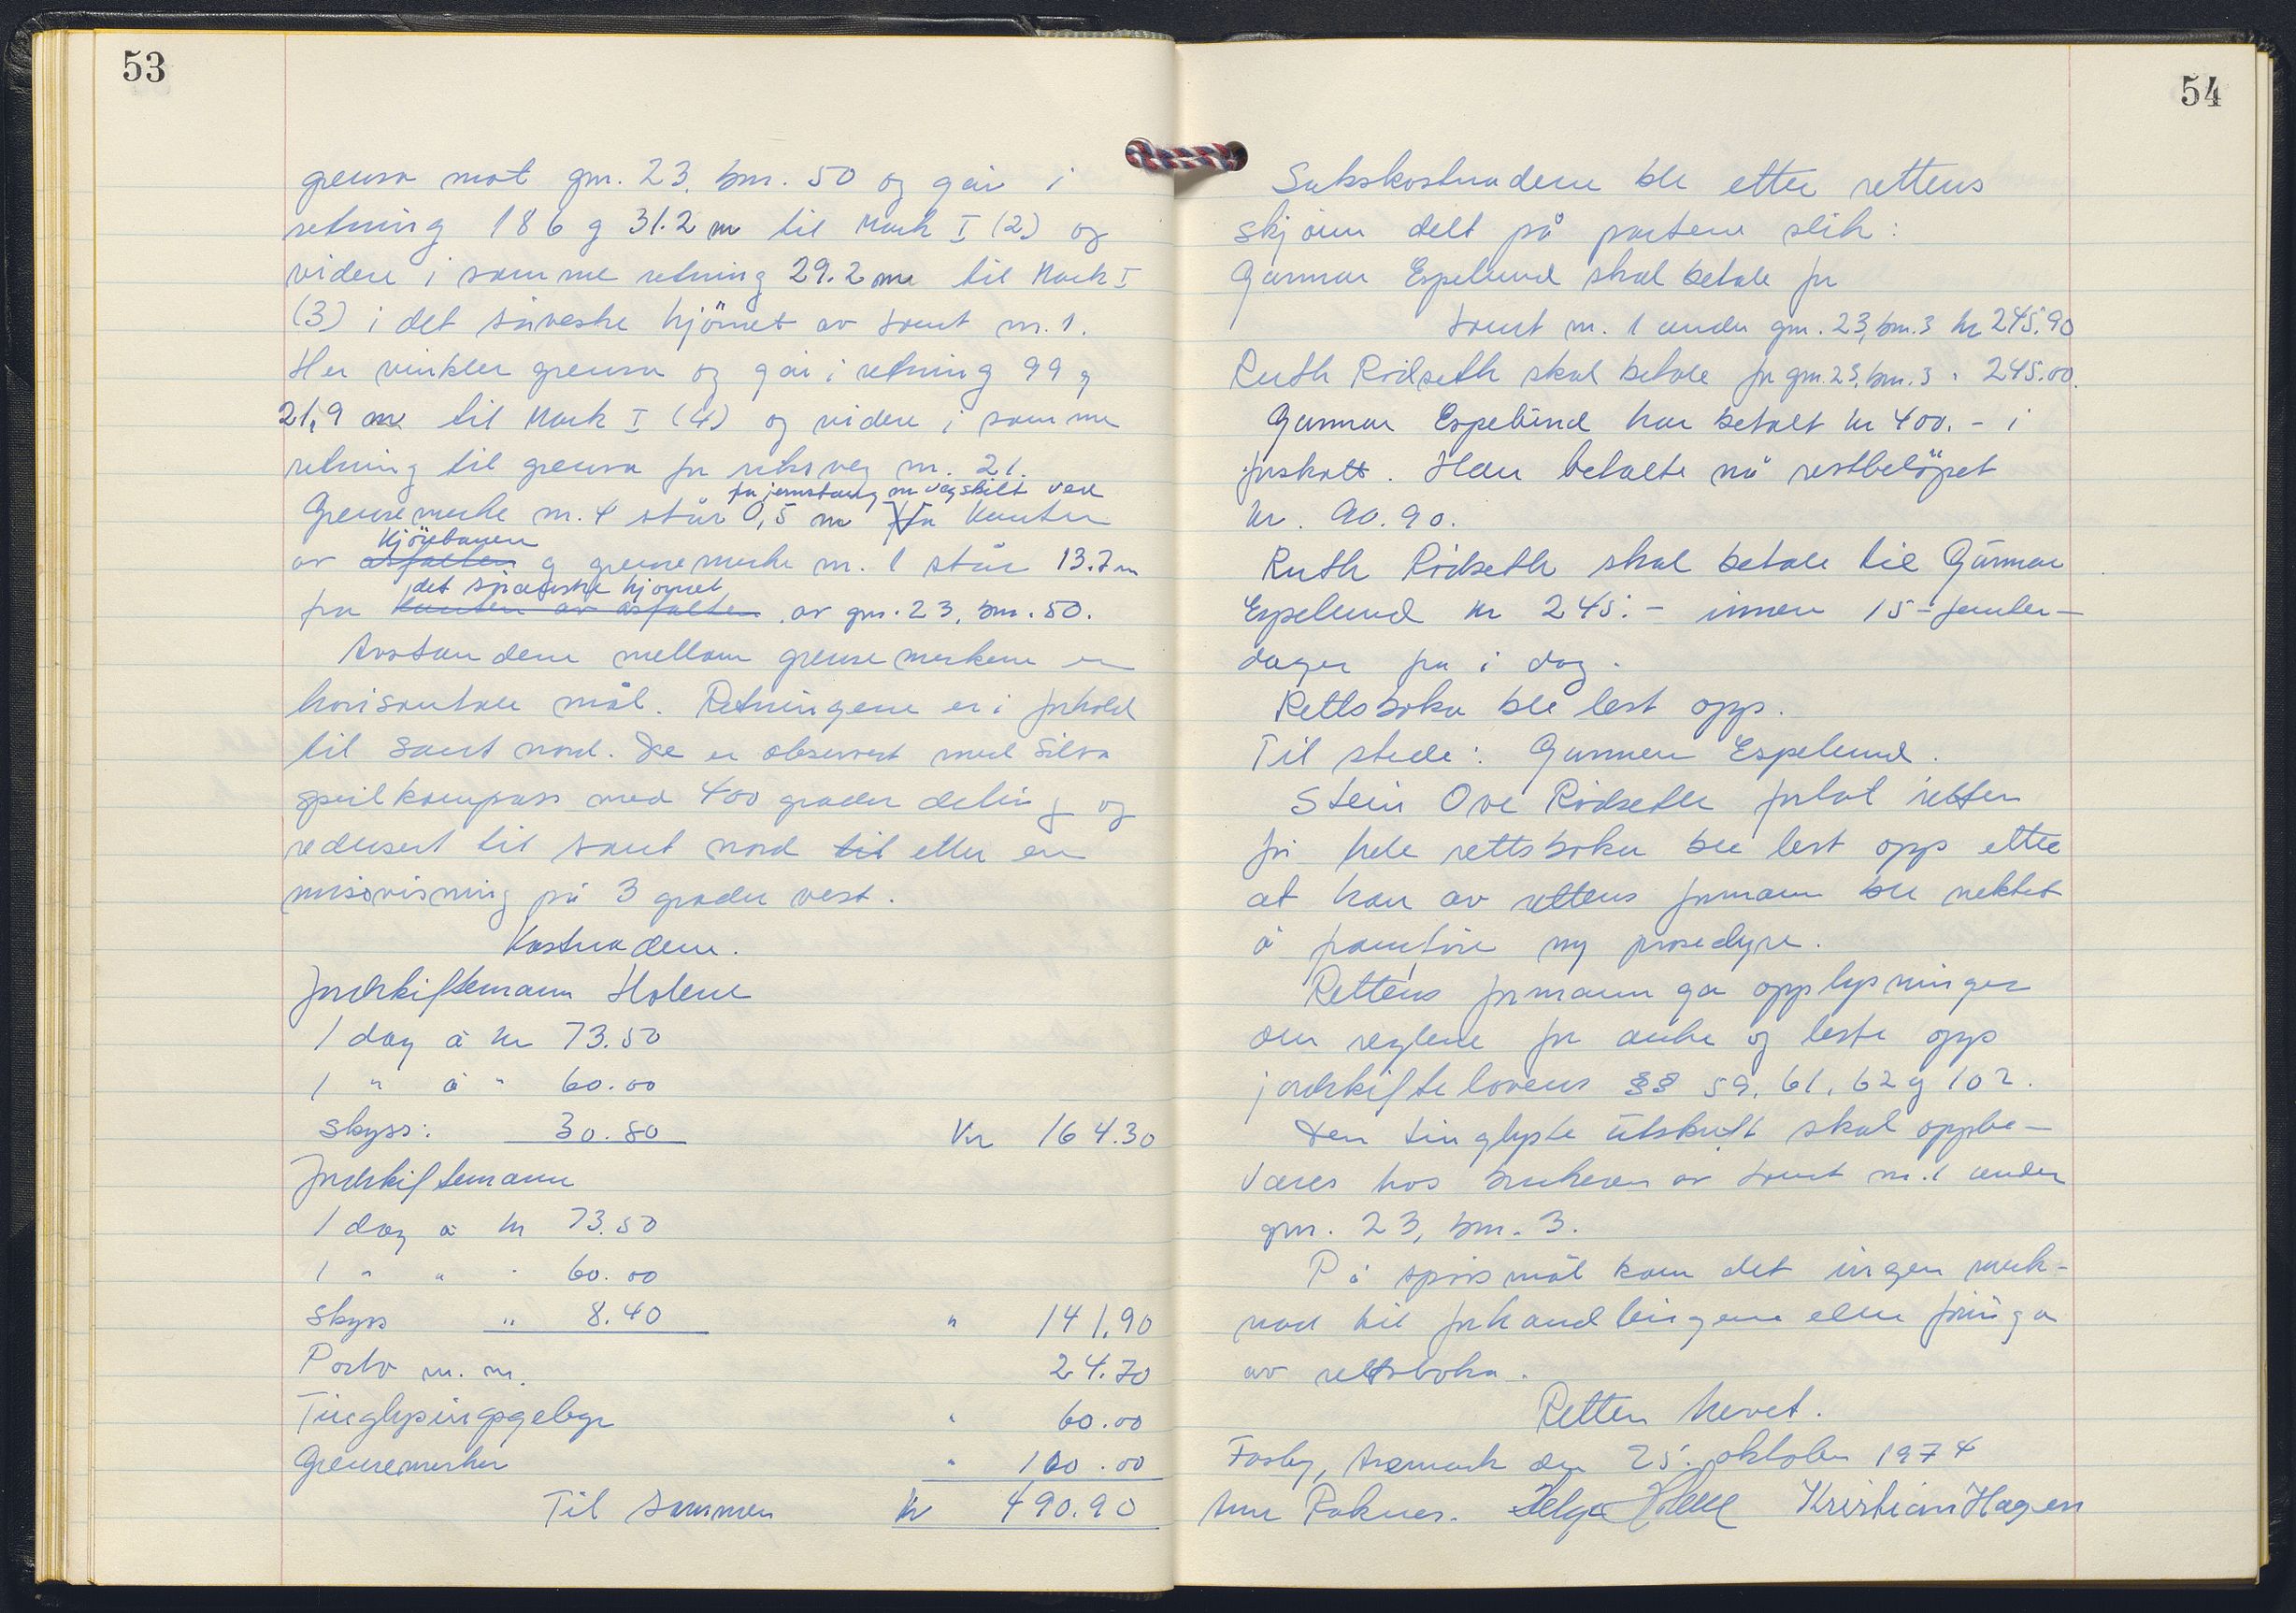 53
grensa mot gnr. 23, bnr. 50 og går i
retning 186 g 31.2 m til Mark I (2) og
videre i samme retning 29.2 m til Mark I
(3) i det sørvestre hjörnet av tomt nr. 1.
Her vinkler grensa og går i retning 99 g
21,9 m til Mark I (4) og videre i samme
retning til grensa for riksveg nr. 21.
fra jernstang m vegskilt ved
Grensemerke nr. 4 står 0,5 m fra kanten
Kjörebanen
av asfalten og grensemerke nr. 1 står 13.7 m
det sørøstre hjørnet
fra kanten av asfalten av gnr. 23, bnr. 50.
Avstandene mellom grensemerkene er
horisontale mål. Retningene er i forhold
til sant nord. De er observert med Silva
speilkompass med 400 grader deling og
redusert til sant nord til etter en
misvisning på 3 grader vest.
Kostnadene.
Jordskiftemann Holene
1 dag à kr 73.50
1 " à " 60.00
Skyss: 30.80 Kr 164.30
Jordskiftemann
1 dag à kr 73.50
1 " " " 60.00
Skyss " 8.40 " 141.90
Porto m. m. 24.70
Tinglysingsgebyr " 60.00
Grensemerker " 100.00
Til sammen kr 490.90
54
Sakskostnadene ble etter rettens
skjønn delt på partene slik:
Gunnar Espelund skal betale for
tomt nr. 1 under gnr. 23, bnr. 3 kr 245.90
Ruth Rödseth skal betale for gnr. 23, bnr. 3 " 245.00.
Gunnar Espelund har betalt kr 400.- i
forskott. Han betalte nå restbelöpet
kr. 90.90.
Ruth Rödseth skal betale til Gunnar
Espelund kr 245.- innen 15-femten-
dager fra i dag.
Rettsboka ble lest opp.
Til stede: Gunnar Espelund.
Stein Ove Rödseth forlot retten
før hele rettsboka ble lest opp etter
at han av rettens formann ble nektet
å framføre ny prosedyre.
Rettens formann ga opplysninger
om reglene for anke og leste opp
jordskiftelovens §§ 59, 61, 62 og 102.
Den tinglyste utskrift skal oppbe-
vares hos brukeren av tomt nr. 1 under
gnr. 23, bnr. 3.
På spørsmål kom det ingen merk-
nad til forhandlingene eller føringa
av rettsboka.
Retten hevet.
Fosby, Aremark den 25. oktober 1974
Raknes. Helge Holene Kristian Hagen